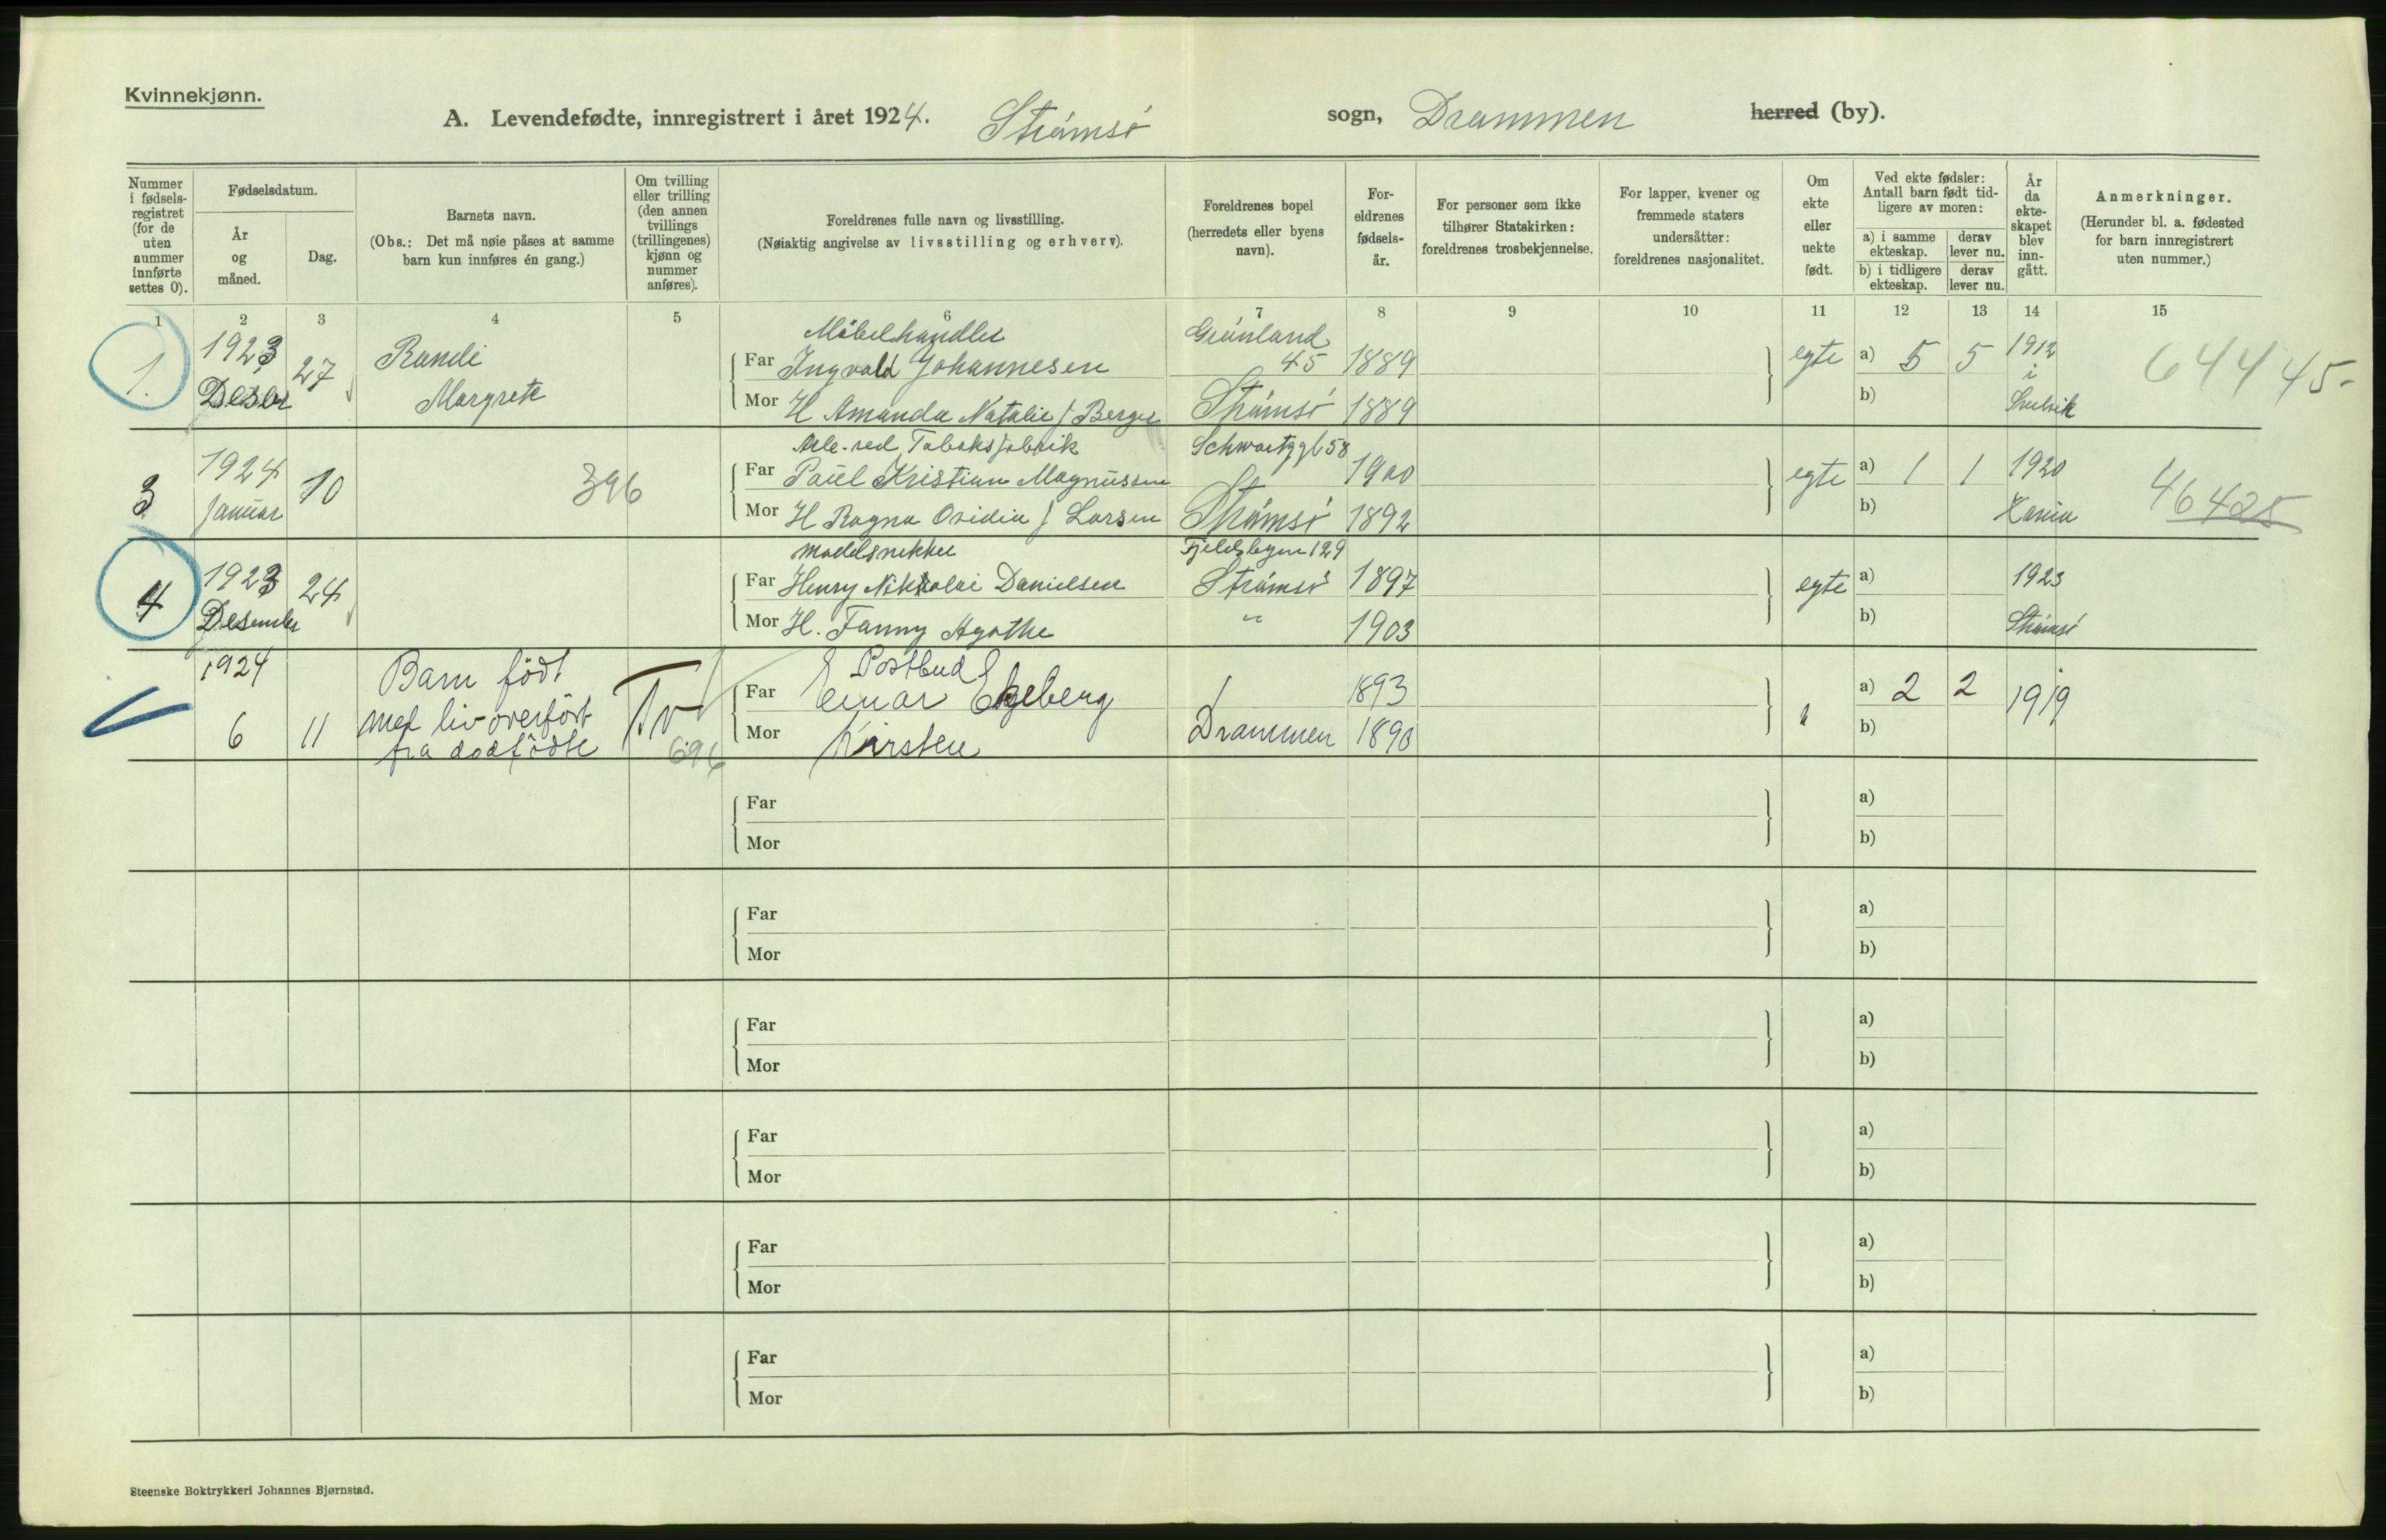 Kvinnekjønn.
A. Levendefødte, innregistrert i året 1924. Strømsø sogn, Drammen herred (by).
Nummer i fødsels-registret (for de uten nummer innførte settes 0).
Fødselsdatum.
År og måned.
Dag.
Barnets navn.
(Obs.: Det må nøie påses at samme barn kun innføres én gang.)
Om tvilling eller trilling (den annen tvillings (trillingenes) kjønn og nummer anføres).
Foreldrenes fulle navn og livsstilling.
(Nøiaktig angivelse av livsstilling og erhverv).
Foreldrenes bopel (herredets eller byens navn).
For-eldrenes fødsels-år.
For personer som ikke tilhører Statskirken: foreldrenes trosbekjennelse.
For lapper, kvener og fremmede staters undersåtter: foreldrenes nasjonalitet.
Om ekte eller uekte født.
Ved ekte fødsler: Antall barn født tid-ligere av moren:
a) i samme ekteskap.
derav lever nu.
b) i tidligere ekteskap.
derav lever nu.
År da ekte-skapet blev inn-gått.
Anmerkninger.
(Herunder bl. a. fødested for barn innregistrert uten nummer.)
1 2 3 4 5 6 7 8 9 10 11 12 13 14 15
1. 1923 Desbr 27 Randi Margrete
Møbelhandler
Far Ingvald Johannesen Grønland 45 1889
Mor H Amanda Natalie f Berger Strømsø 1889
egte a) 5 5 1912 i Svelvik
b)
644 45-
3 1924 Januar 10 396
Arb. ved Tobaksfabrik Schwartzgt 58
Far Paul Kristian Magnussen 1900
Mor H Ragna Ovidia f Larsen Strømsø 1892
egte a) 1 1 1920 Xania
b)
46425
4 1923 Desember 24
Modelsnekker
Far Henry Nikolai Danielsen Strømsø 1897
Mor H. Fanny Agathe " 1903
egte a) 1923 Strømsø
b)
1924 6 11 Barn født
med liv overført
fra dødfødte
Tv 696
Postbud
Far Einar Ekeberg 1893
Mor Kirsten Drammen 1890
" a) 2 2 1919
b)
Far a)
Mor b)
Far a)
Mor b)
Far a)
Mor b)
Far a)
Mor b)
Far a)
Mor b)
Far a)
Mor b)
Steenske Boktrykkeri Johannes Bjørnstad.